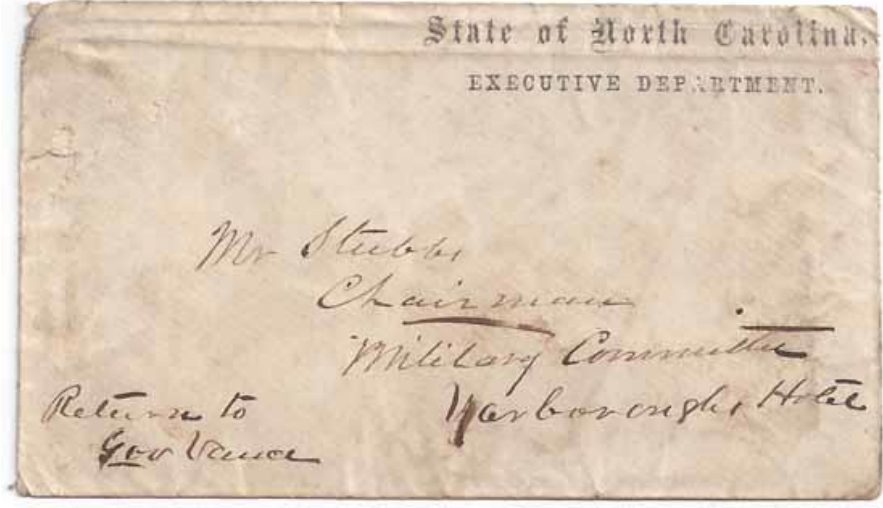 State of North Carolina,
EXECUTIVE DEPARTMENT.
Mr Stubbs
Chairman
Military Committee
Yarborough Hotel
Return to
Gov Vance